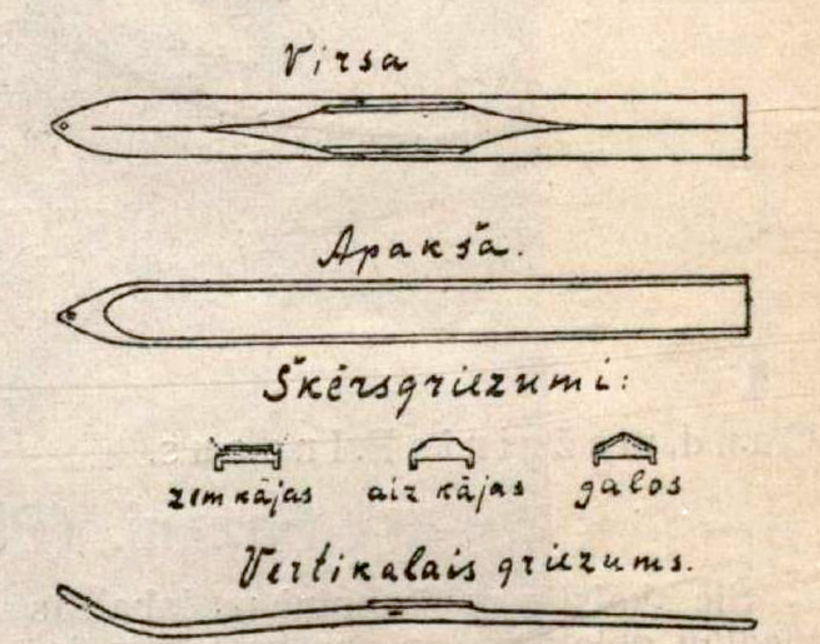 Virsa
Apakša.
Šķērsgriezumi:
zem kājas aiz kājas galos
Vertikalais griezums.